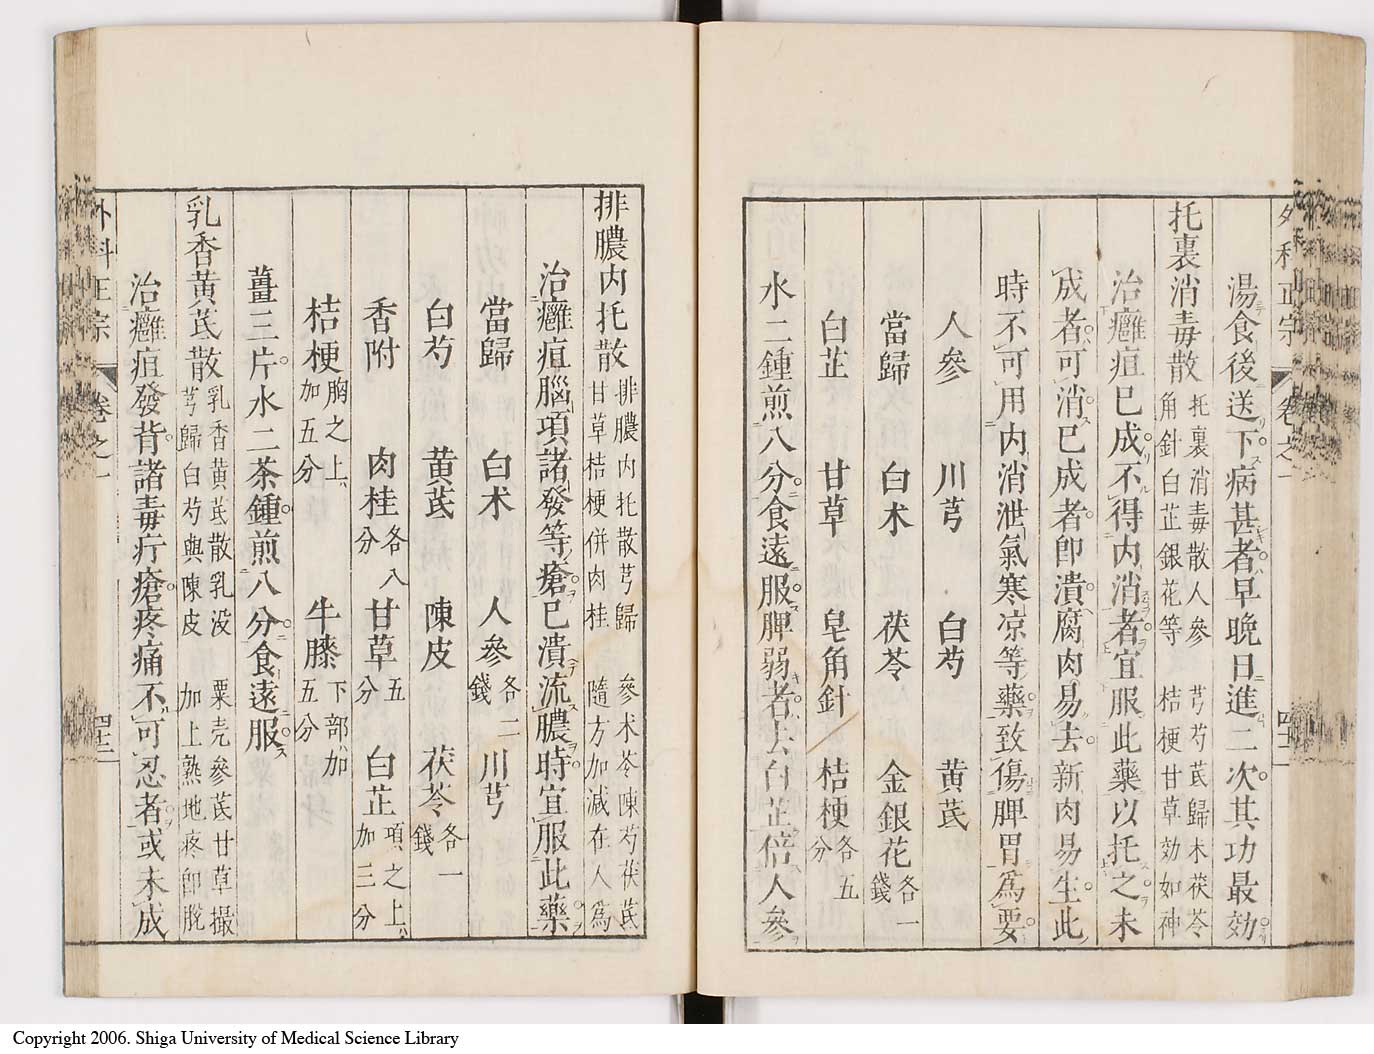 外科正宗 卷之一 四十二
湯食後送下病甚者早晚日進二次其功最効
托裏消毒散 托裏消毒散人參 芎芍茋歸术茯苓 角針白芷銀花等 桔梗甘草効如神
治癰疽已成不得內消者宜服此藥以托之未
成者可消已成者即潰腐肉易去新肉易生此
時不可用内消泄氣寒凉等藥致傷脾胃爲要
人參 川芎 白芍 黄茋
當歸 白术 茯苓 金銀花各一錢
白芷 甘草 皂角針 桔梗各五分
水二鍾煎八分食遠服脾弱者去白芷倍人參
排膿内托散 排膿内托散芎歸 參术苓陳芍茯茋 甘草桔梗併肉桂 隨方加減在人爲
治癰疽腦項諸發等瘡已潰流膿時宜服此藥
當歸 白术 人參各二錢 川芎
白芍 黄茋 陳皮 茯苓各一錢
香附 肉桂各八分 甘草五分 白芷項之上加三分
桔梗胸之上加五分 牛膝下部加五分
薑三片水二茶鍾煎八分食遠服
乳香黄茋散 乳香黄茋散乳没 粟壳參茋甘草撮 芎歸白芍與陳皮 加上熟地疼即脫
治癰疽發背諸毒疔瘡疼痛不可忍者或未成
外科正宗 卷之一 四十二
Copyright 2006. Shiga University of Medical Science Library